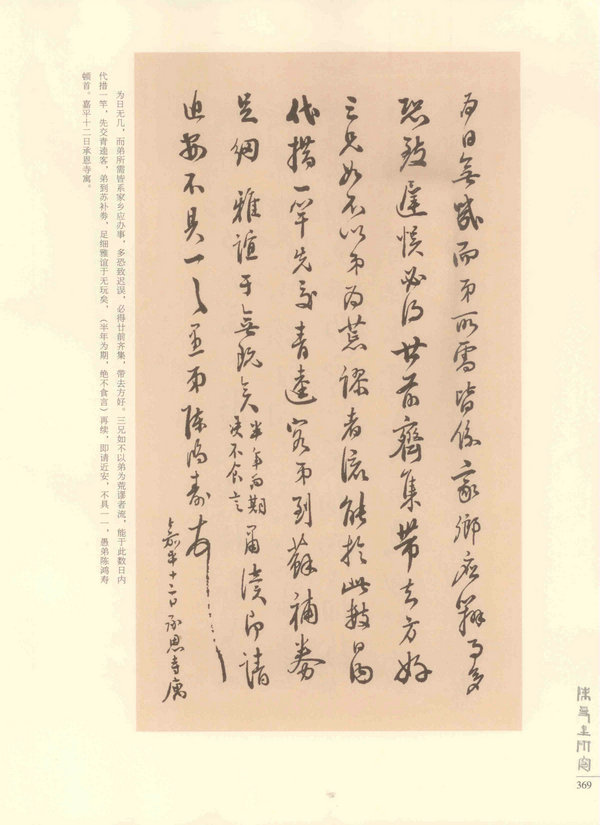 为日无几，而弟所需皆系家乡应办事，多恐致迟误，必得廿前齐集，带去方好。三兄如不以弟为荒谬者流，能于此数日内
代措一竿，先交青逵客，弟到苏补券，足细雅谊于无玩矣，（半年为期，绝不食言）再续，即请近安，不具一一，愚弟陈鸿寿
顿首。嘉平十二日承恩寺寓。
為日無幾而弟所需皆係家鄉應辦事多
恐致遲悮必得廿前齊集帶去方好
三兄如不以弟為荒謬者流能於此數日內
代措一竿先交青逵客弟到蘇補券
足細雅誼于無玩矣半年為期
絕不食言再續即請
近安不具一一愚弟陳鴻壽頓首
嘉平十二日承恩寺寓
369